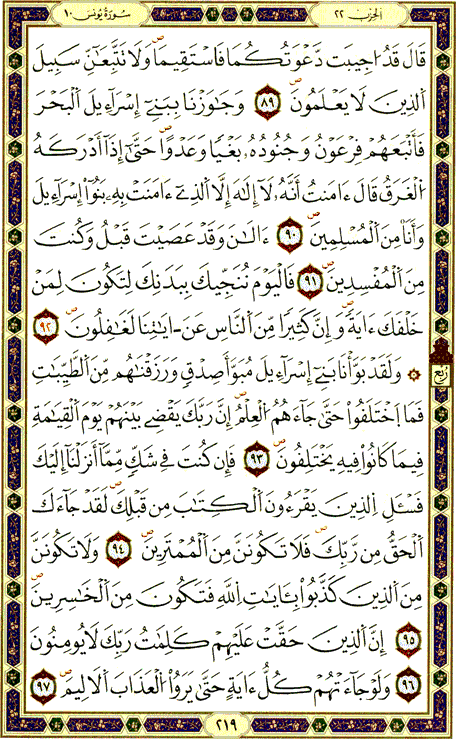 الحزب ٢٢
سورة يونس ١٠
قَالَ قَدُ ا۟جِيبَت دَّعْوَتُكُمَا فَاسْتَقِيمَا وَلَا تَتَّبِعَآنِّ سَبِيلَ
اَ۬لذِينَ لَا يَعْلَمُونَۖ ٨٩ وَجَٰوَزْنَا بِبَنِےٓ إِسْرَآءِيلَ اَ۬لْبَحْرَ
فَأَتْبَعَهُمْ فِرْعَوْنُ وَجُنُودُهُۥ بَغْياً وَعَدْواًۖ حَتَّىٰٓ إِذَآ أَدْرَكَهُ
اُ۬لْغَرَقُ قَالَ ءَامَنتُ أَنَّهُۥ لَآ إِلَٰهَ إِلَّا اَ۬لذِےٓ ءَامَنَتْ بِهِۦ بَنُوٓاْ إِسْرَآءِيلَ
وَأَنَا مِنَ اَ۬لْمُسْلِمِينَۖ ٩٠ ءَآلَٰنَ وَقَدْ عَصَيْتَ قَبْلُ وَكُنتَ
مِنَ اَ۬لْمُفْسِدِينَۖ ٩١ فَالْيَوْمَ نُنَجِّيكَ بِبَدَنِكَ لِتَكُونَ لِمَنْ
خَلْفَكَ ءَايَةٗۖ وَإِنَّ كَثِيراً مِّنَ اَ۬لنَّاسِ عَنَ اٰيَٰتِنَا لَغَٰفِلُونَۖ ٩٢
۞ وَلَقَدْ بَوَّأْنَا بَنِےٓ إِسْرَآءِيلَ مُبَوَّأَ صِدْقٖ وَرَزَقْنَٰهُم مِّنَ اَ۬لطَّيِّبَٰتِ
ربع
فَمَا اَ۪خْتَلَفُواْ حَتَّىٰ جَآءَهُمُ اُ۬لْعِلْمُۖ إِنَّ رَبَّكَ يَقْضِے بَيْنَهُمْ يَوْمَ اَ۬لْقِيَٰمَةِ
فِيمَا كَانُواْ فِيهِ يَخْتَلِفُونَۖ ٩٣ فَإِن كُنتَ فِے شَكّٖ مِّمَّآ أَنزَلْنَآ إِلَيْكَ
فَسْـَٔلِ اِ۬لذِينَ يَقْرَءُونَ اَ۬لْكِتَٰبَ مِن قَبْلِكَۖ لَقَدْ جَآءَكَ
اَ۬لْحَقُّ مِن رَّبِّكَۖ فَلَا تَكُونَنَّ مِنَ اَ۬لْمُمْتَرِينَۖ ٩٤ وَلَا تَكُونَنَّ
مِنَ اَ۬لذِينَ كَذَّبُواْ بِـَٔايَٰتِ اِ۬للَّهِ فَتَكُونَ مِنَ اَ۬لْخَٰسِرِينَۖ
٩٥ إِنَّ اَ۬لذِينَ حَقَّتْ عَلَيْهِمْ كَلِمَٰتُ رَبِّكَ لَا يُومِنُونَ
٩٦ وَلَوْ جَآءَتْهُمْ كُلُّ ءَايَةٍ حَتَّىٰ يَرَوُاْ اُ۬لْعَذَابَ اَ۬لَالِيمَۖ ٩٧
٢١٩